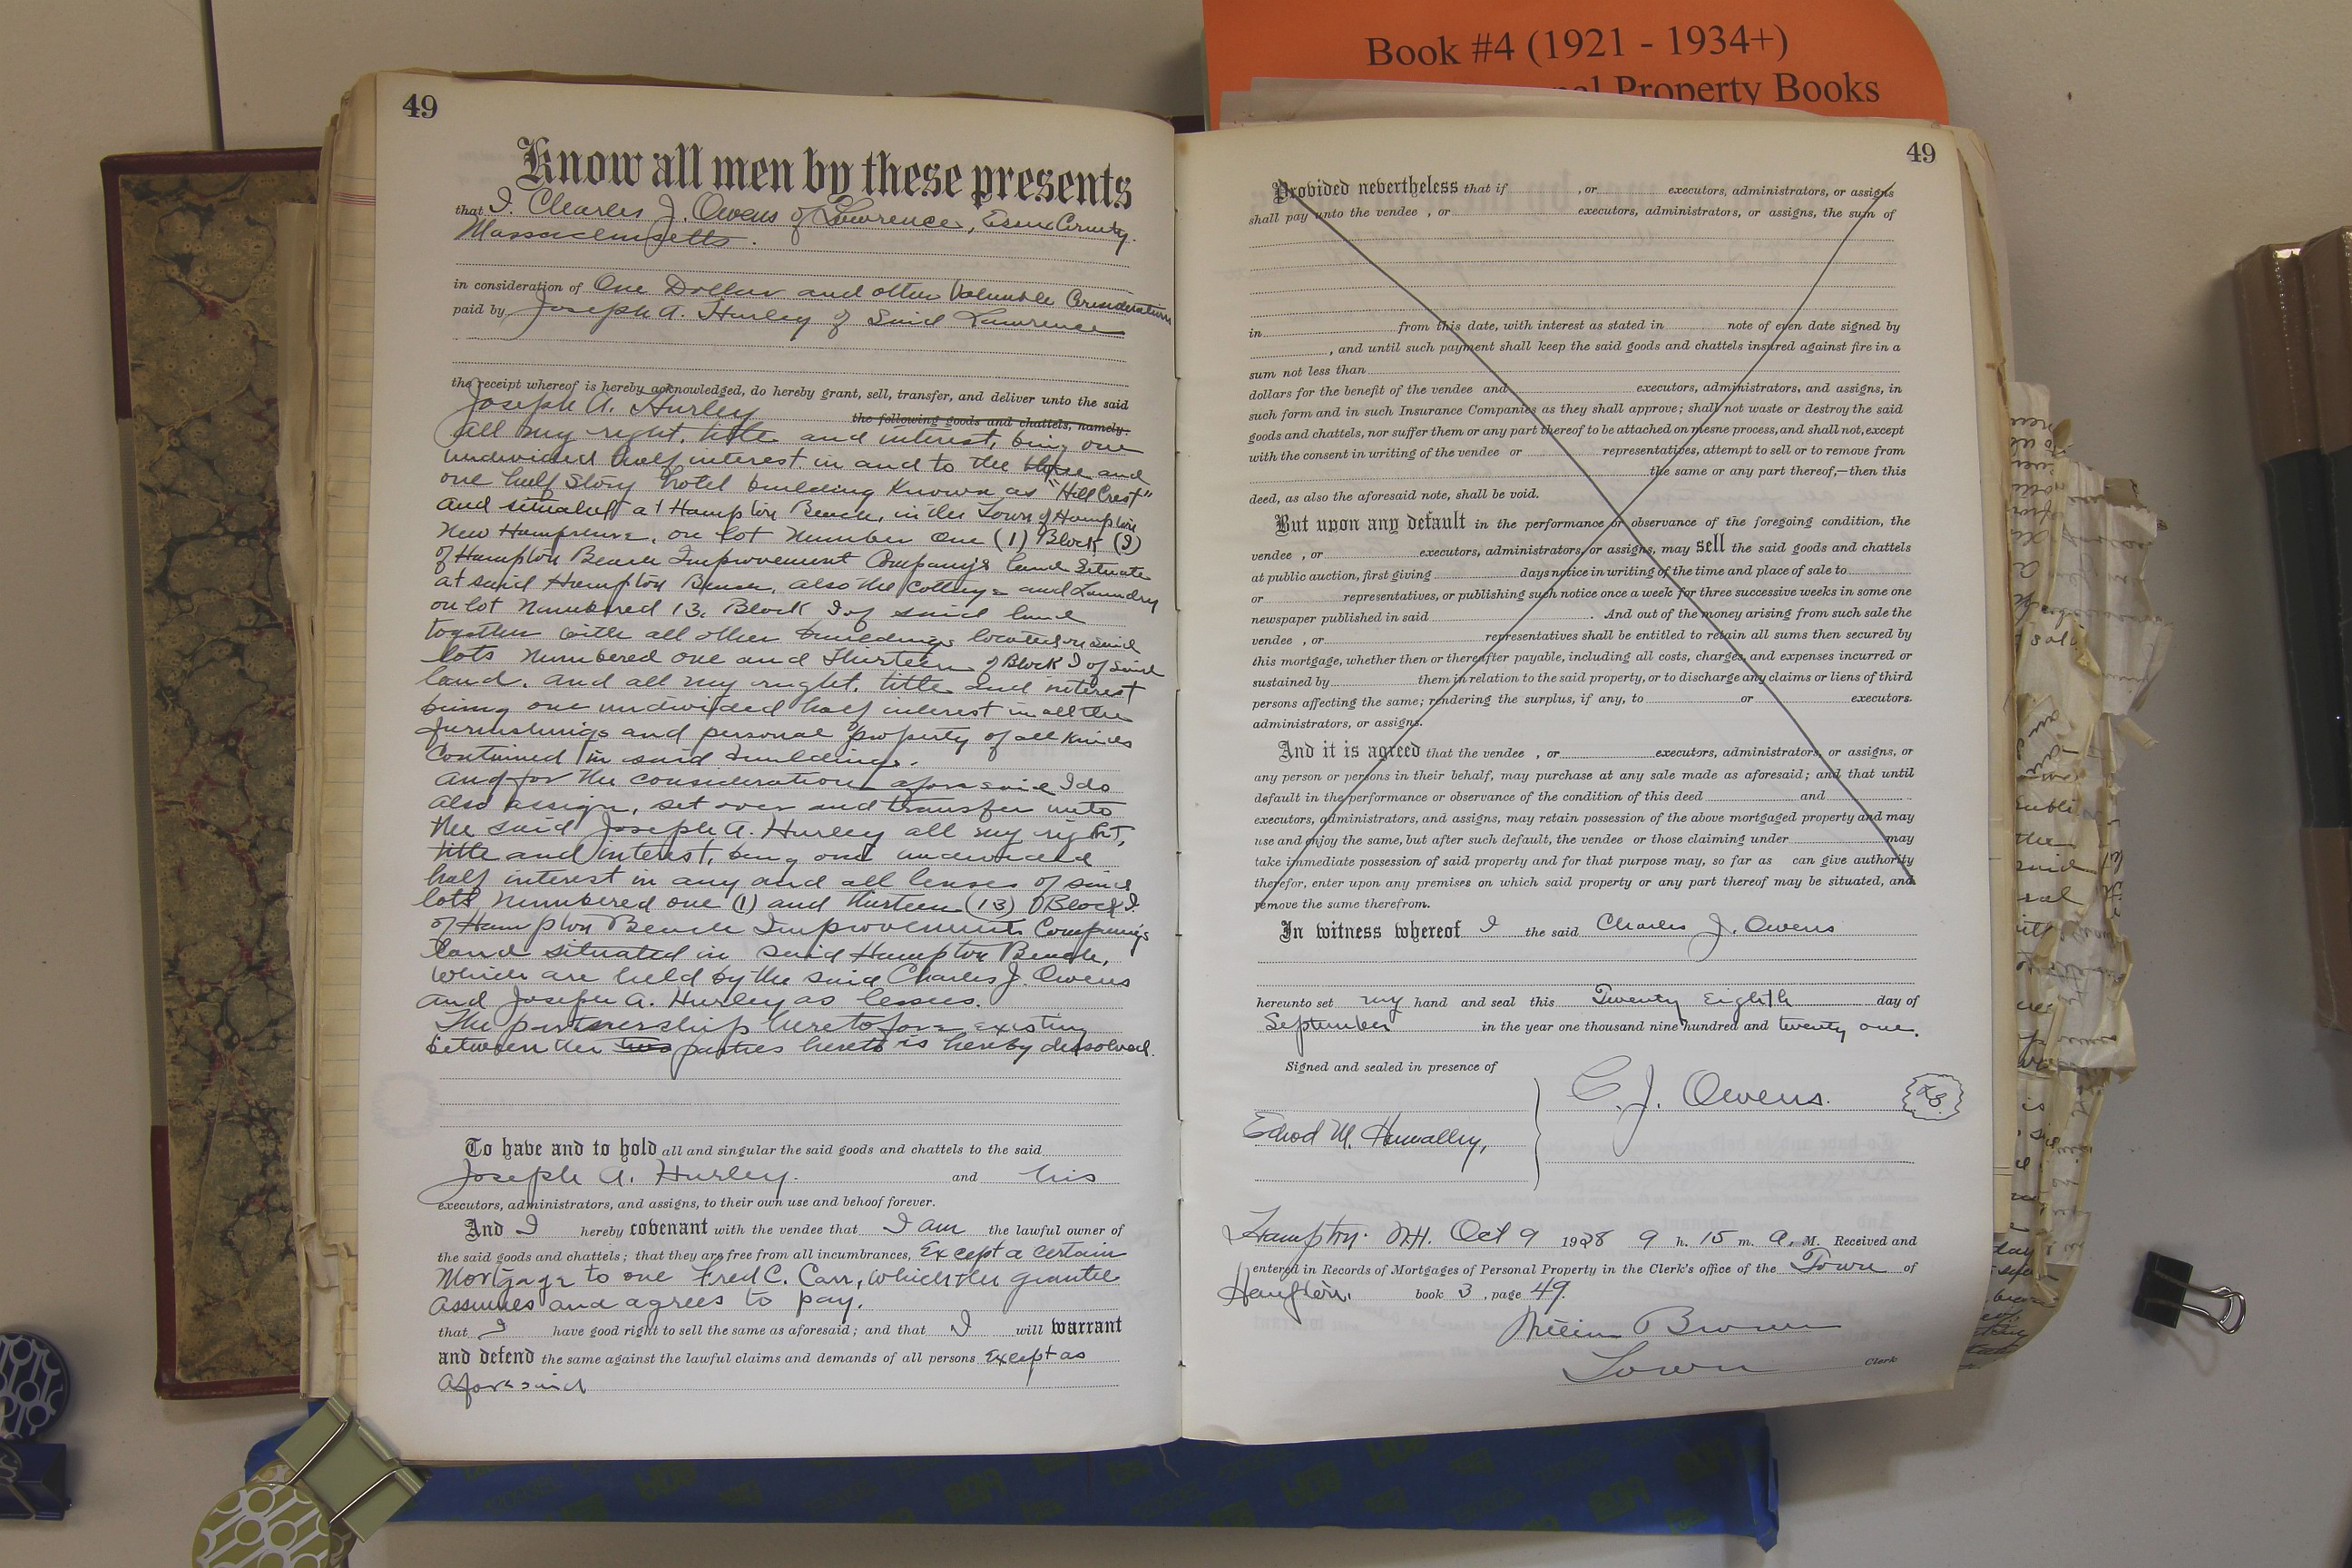 Book #4 (1921 - 1934+)
nal Property Books
49
Know all men by these presents
that I, Charles J. Owens of Lawrence, Essex County.
Massachusetts.
in consideration of One Dollar and other Valuable Consideration
paid by Joseph A. Hurley of Said Lawrence
the receipt whereof is hereby acknowledged, do hereby grant, sell, transfer, and deliver unto the said
Joseph A. Hurley the following goods and chattels, namely.
all my right, title and interest, being one
undivided half interest in and to the three and
one half story hotel building Known as "Hill Crest"
and situated at Hampton Beach, in the Town of Hampton
New Hampshire, on lot Number One (1) Block (I)
of Hampton Beach Improvement Company's land Situate
at said Hampton Beach, also the Cottage and Laundry
on lot Numbered 13, Block I of said land
together with all other buildings located on said
lots Numbered one and Thirteen of Block I of said
land, and all my right, title and interest
being one undivided half interest in all the
furnishings and personal property of all kinds
contained in said buildings.
and for the consideration aforesaid I do
also assign, set over and transfer unto
the said Joseph A. Hurley all my right,
title and interest, being one undivided
half interest in any and all leases of said
lots numbered one (1) and thirteen (13) of Block I.
of Hampton Beach Improvements Company's
land situated in said Hampton Beach,
which are held by the said Charles J. Owens
and Joseph A. Hurley as lessees.
The partnership heretofore existing
between the two parties hereto is hereby dissolved.
To have and to hold all and singular the said goods and chattels to the said
Joseph A. Hurley. and his
executors, administrators, and assigns, to their own use and behoof forever.
And I hereby covenant with the vendee that I am the lawful owner of
the said goods and chattels; that they are free from all incumbrances, Except a certain
Mortgage to one Fred C. Carr, which the grantee
assumes and agrees to pay.
that I have good right to sell the same as aforesaid; and that I will warrant
and defend the same against the lawful claims and demands of all persons Except as
aforesaid
49
Provided nevertheless that if , or executors, administrators, or assigns
shall pay unto the vendee , or executors, administrators, or assigns, the sum of
in from this date, with interest as stated in note of even date signed by
, and until such payment shall keep the said goods and chattels insured against fire in a
sum not less than
dollars for the benefit of the vendee and executors, administrators, and assigns, in
such form and in such Insurance Companies as they shall approve; shall not waste or destroy the said
goods and chattels, nor suffer them or any part thereof to be attached on mesne process, and shall not, except
with the consent in writing of the vendee or representatives, attempt to sell or to remove from
the same or any part thereof,—then this
deed, as also the aforesaid note, shall be void.
But upon any default in the performance or observance of the foregoing condition, the
vendee , or executors, administrators, or assigns, may sell the said goods and chattels
at public auction, first giving days notice in writing of the time and place of sale to
or representatives, or publishing such notice once a week for three successive weeks in some one
newspaper published in said . And out of the money arising from such sale the
vendee , or representatives shall be entitled to retain all sums then secured by
this mortgage, whether then or thereafter payable, including all costs, charges, and expenses incurred or
sustained by them in relation to the said property, or to discharge any claims or liens of third
persons affecting the same; rendering the surplus, if any, to or executors.
administrators, or assigns.
And it is agreed that the vendee , or executors, administrators, or assigns, or
any person or persons in their behalf, may purchase at any sale made as aforesaid; and that until
default in the performance or observance of the condition of this deed and
executors, administrators, and assigns, may retain possession of the above mortgaged property and may
use and enjoy the same, but after such default, the vendee or those claiming under may
take immediate possession of said property and for that purpose may, so far as can give authority
therefor, enter upon any premises on which said property or any part thereof may be situated, and
remove the same therefrom.
In witness whereof I the said Charles J. Owens
hereunto set my hand and seal this Twenty Eighth day of
September in the year one thousand nine hundred and twenty one.
Signed and sealed in presence of
C. J. Owens.
M.
Hampton. N.H. Oct 9 1928 9 h. 15 m. A. M. Received and
entered in Records of Mortgages of Personal Property in the Clerk's office of the Town of
Hampton. book 3 , page 49.
William Brown
Town Clerk